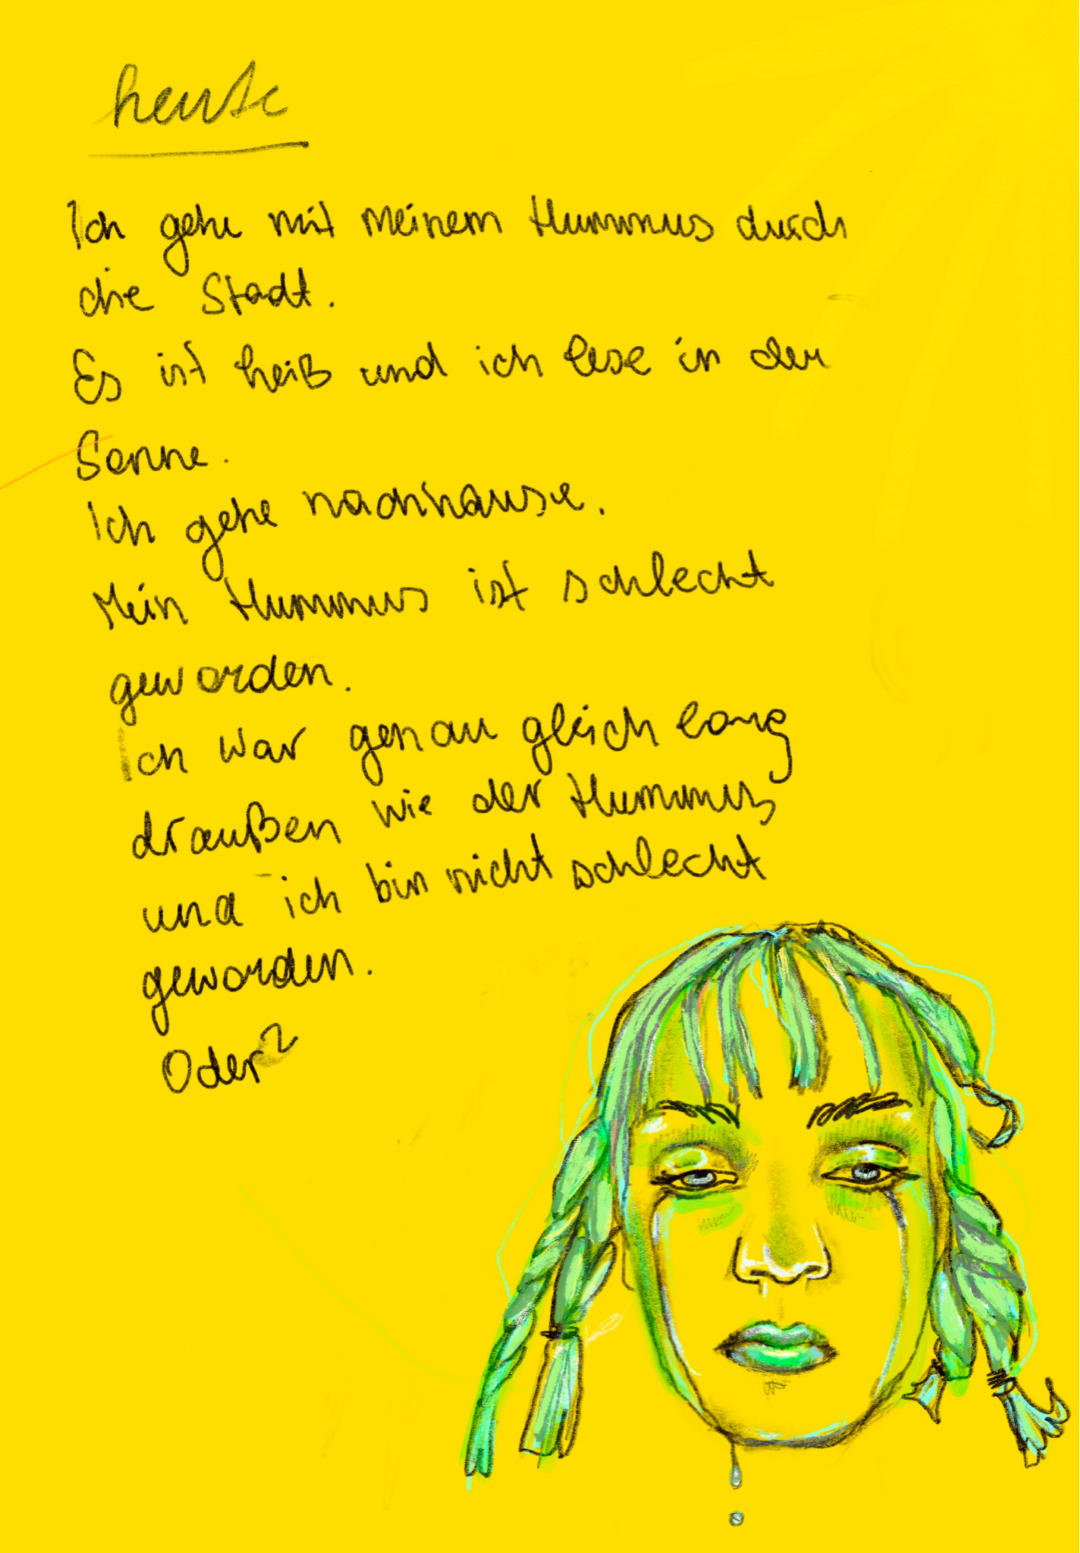 heute
Ich gehe mit meinem Hummus durch
die Stadt.
Es ist heiß und ich lese in der
Sonne.
Ich gehe nachhause.
Mein Hummus ist schlecht
geworden.
Ich war genau gleich lang
draußen wie der Hummus
und ich bin nicht schlecht
geworden.
Oder?